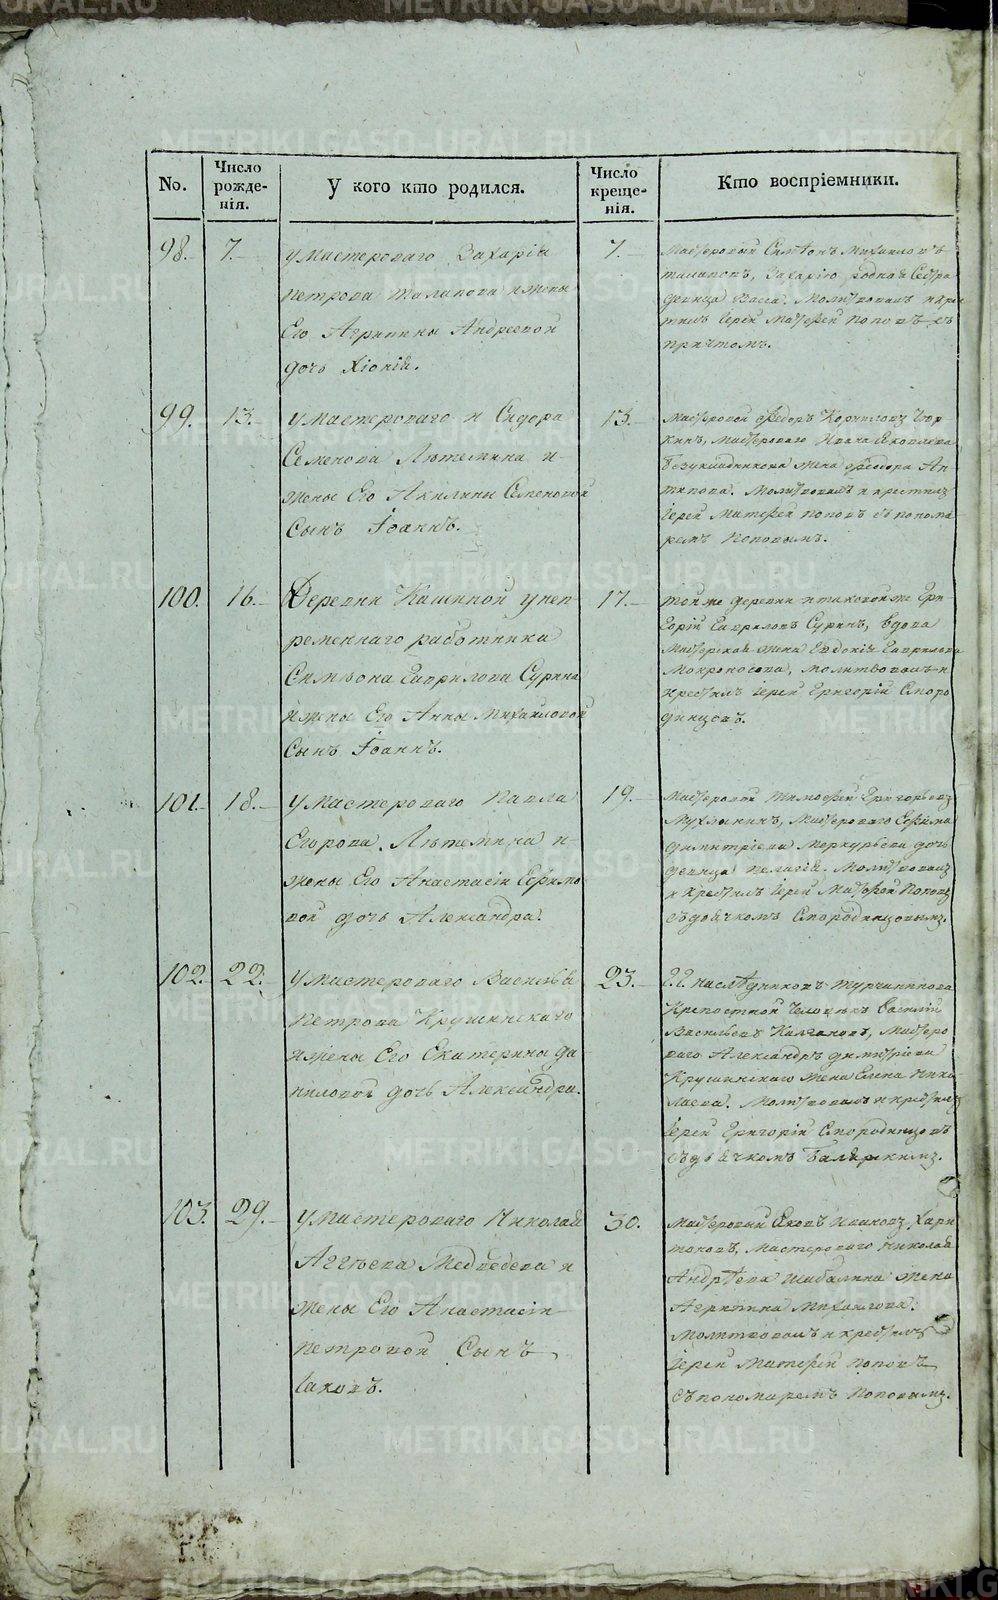 METRIKI.GASO-URAL.RU
No.
Число рожде-нія.
У кого кто родился.
Число креще-нія.
Кто воспріемники.
98. 7.
у мастероваго Захарія
Петрова Талапова и жены
Его Агрипины Андреевой
дочь Хіонія.
7.
Мастеровый Симеонъ Михаиловъ
Талаповъ, Захарію родная Сестра
девица Васса. Молитвовалъ и кре
тилъ Іерей Матфей Поповъ съ
причтомъ.
99. 13.
у мастероваго Сидора
Семенова Лѣтемина и
жены Его Акилины Семеновой
Сынъ Іоаннъ.
13.
Мастеровой Федоръ Корниловъ
мастероваго Ивана Яковлева
жена Феодора Ан
типова. Молитвовалъ и крестилъ
Іерей Матфей Поповъ съ понома
ремъ Поповымъ.
100. 16.
Деревни Кашиной у неп-
ременнаго работника
Симеона Гаврилова Сурина
и жены Его Анны Михаиловой
Сынъ Іоаннъ.
17.
той же деревни и таковой же Гри-
горій Гавриловъ Суринъ, вдова
Мастерская жена Евдокія Гаврилова
Мокроносова, молитвовалъ и
крестилъ Іерей Григорій Сморо
динцовъ.
101. 18.
у мастероваго Павла
Егорова Лѣтемина и
жены Его Анастасіи Ефимо
вой дочь Александра.
19.
Мастеровой Тимофей Григорьевъ
Мухлынинъ, Мастероваго Ефима
Димитріева Меркурьева дочь
девица Пелагія. Молитвовалъ
и крестилъ Іерей Матфей Поповъ
съ дьячкомъ Смородинцовымъ.
102. 22.
у мастероваго Василья
Петрова Крушинскаго
и жены Его Екатерины Да
ниловой дочь Александра.
23.
Г.Г. наслѣдниковъ Турчанинова
Крепостной человекъ Василій
Васильевъ Калгановъ, Мастеро
ваго Александръ Димитріева
Крушинскаго жена Елена Нико
лаева. Молитвовалъ и крестилъ
Іерей Григорій Смородинцовъ
съ дьячкомъ
103. 29.
у мастероваго Николая
Аггѣева Медведева и
жены Его Анастасіи
Петровой Сынъ
Іаковъ.
30.
Мастеровый Яковъ Ивановъ Хари
тоновъ, Мастероваго Николая
Андрѣева Шабалина жена
Агрипина Михаилова.
Молитвовалъ и крестилъ
Іерей Матфей Поповъ
съ пономаремъ Поповымъ.